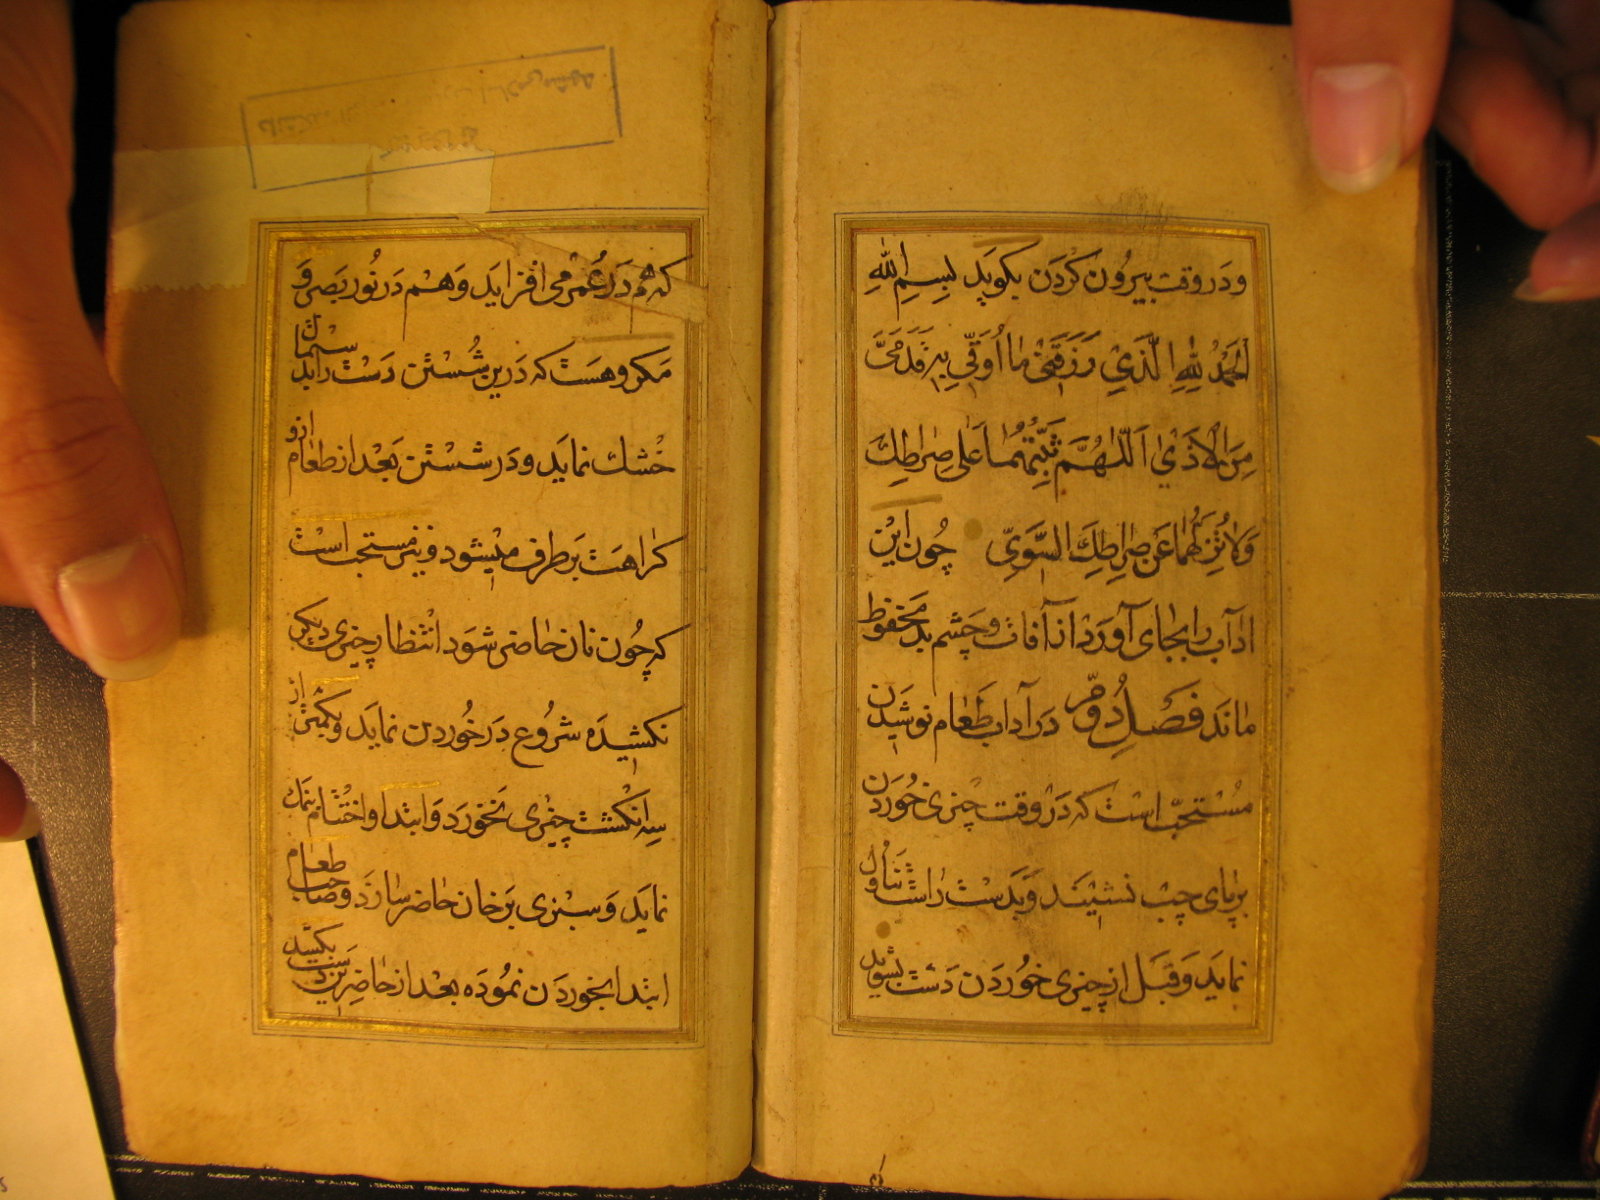 ودر وقت بیرون کردن بکوید بسم الله
الحمد لله الذي رزقني ما اوقي به قدمي
من الاذی اللهم ثبتهما علی صراطك
ولا تزلهما عن صراطك السوي چون این
اداب را بجای آورد از آفات وچشم بد محفوظ
ماند فصل دوم در آداب طعام نوشیدن
مستحب است که در وقت چیزی خوردن
بر پای چپ نشیند وبدست راست تناول
نماید وقبل از چیزی خوردن دست بشوید
که هم در عمر می افزاید وهم در نور بصر و
مکروهست که درین شستن دست را بدستمال
خشك نماید ودر شستن بعد از طعام ازو
کراهت برطرف میشود ونیز مستحب است
که چون نان حاضر شود انتظار چیزی دیکر
نکشیده شروع در خوردن نماید وبکمتر از
سه انکشت چیزی نخورد وابتدا واختتام بنمك
نماید وسبزی بر خان حاضر سازد وصاحب طعام
ابتدا بخوردن نموده بعد از حاضرین دست بکشد